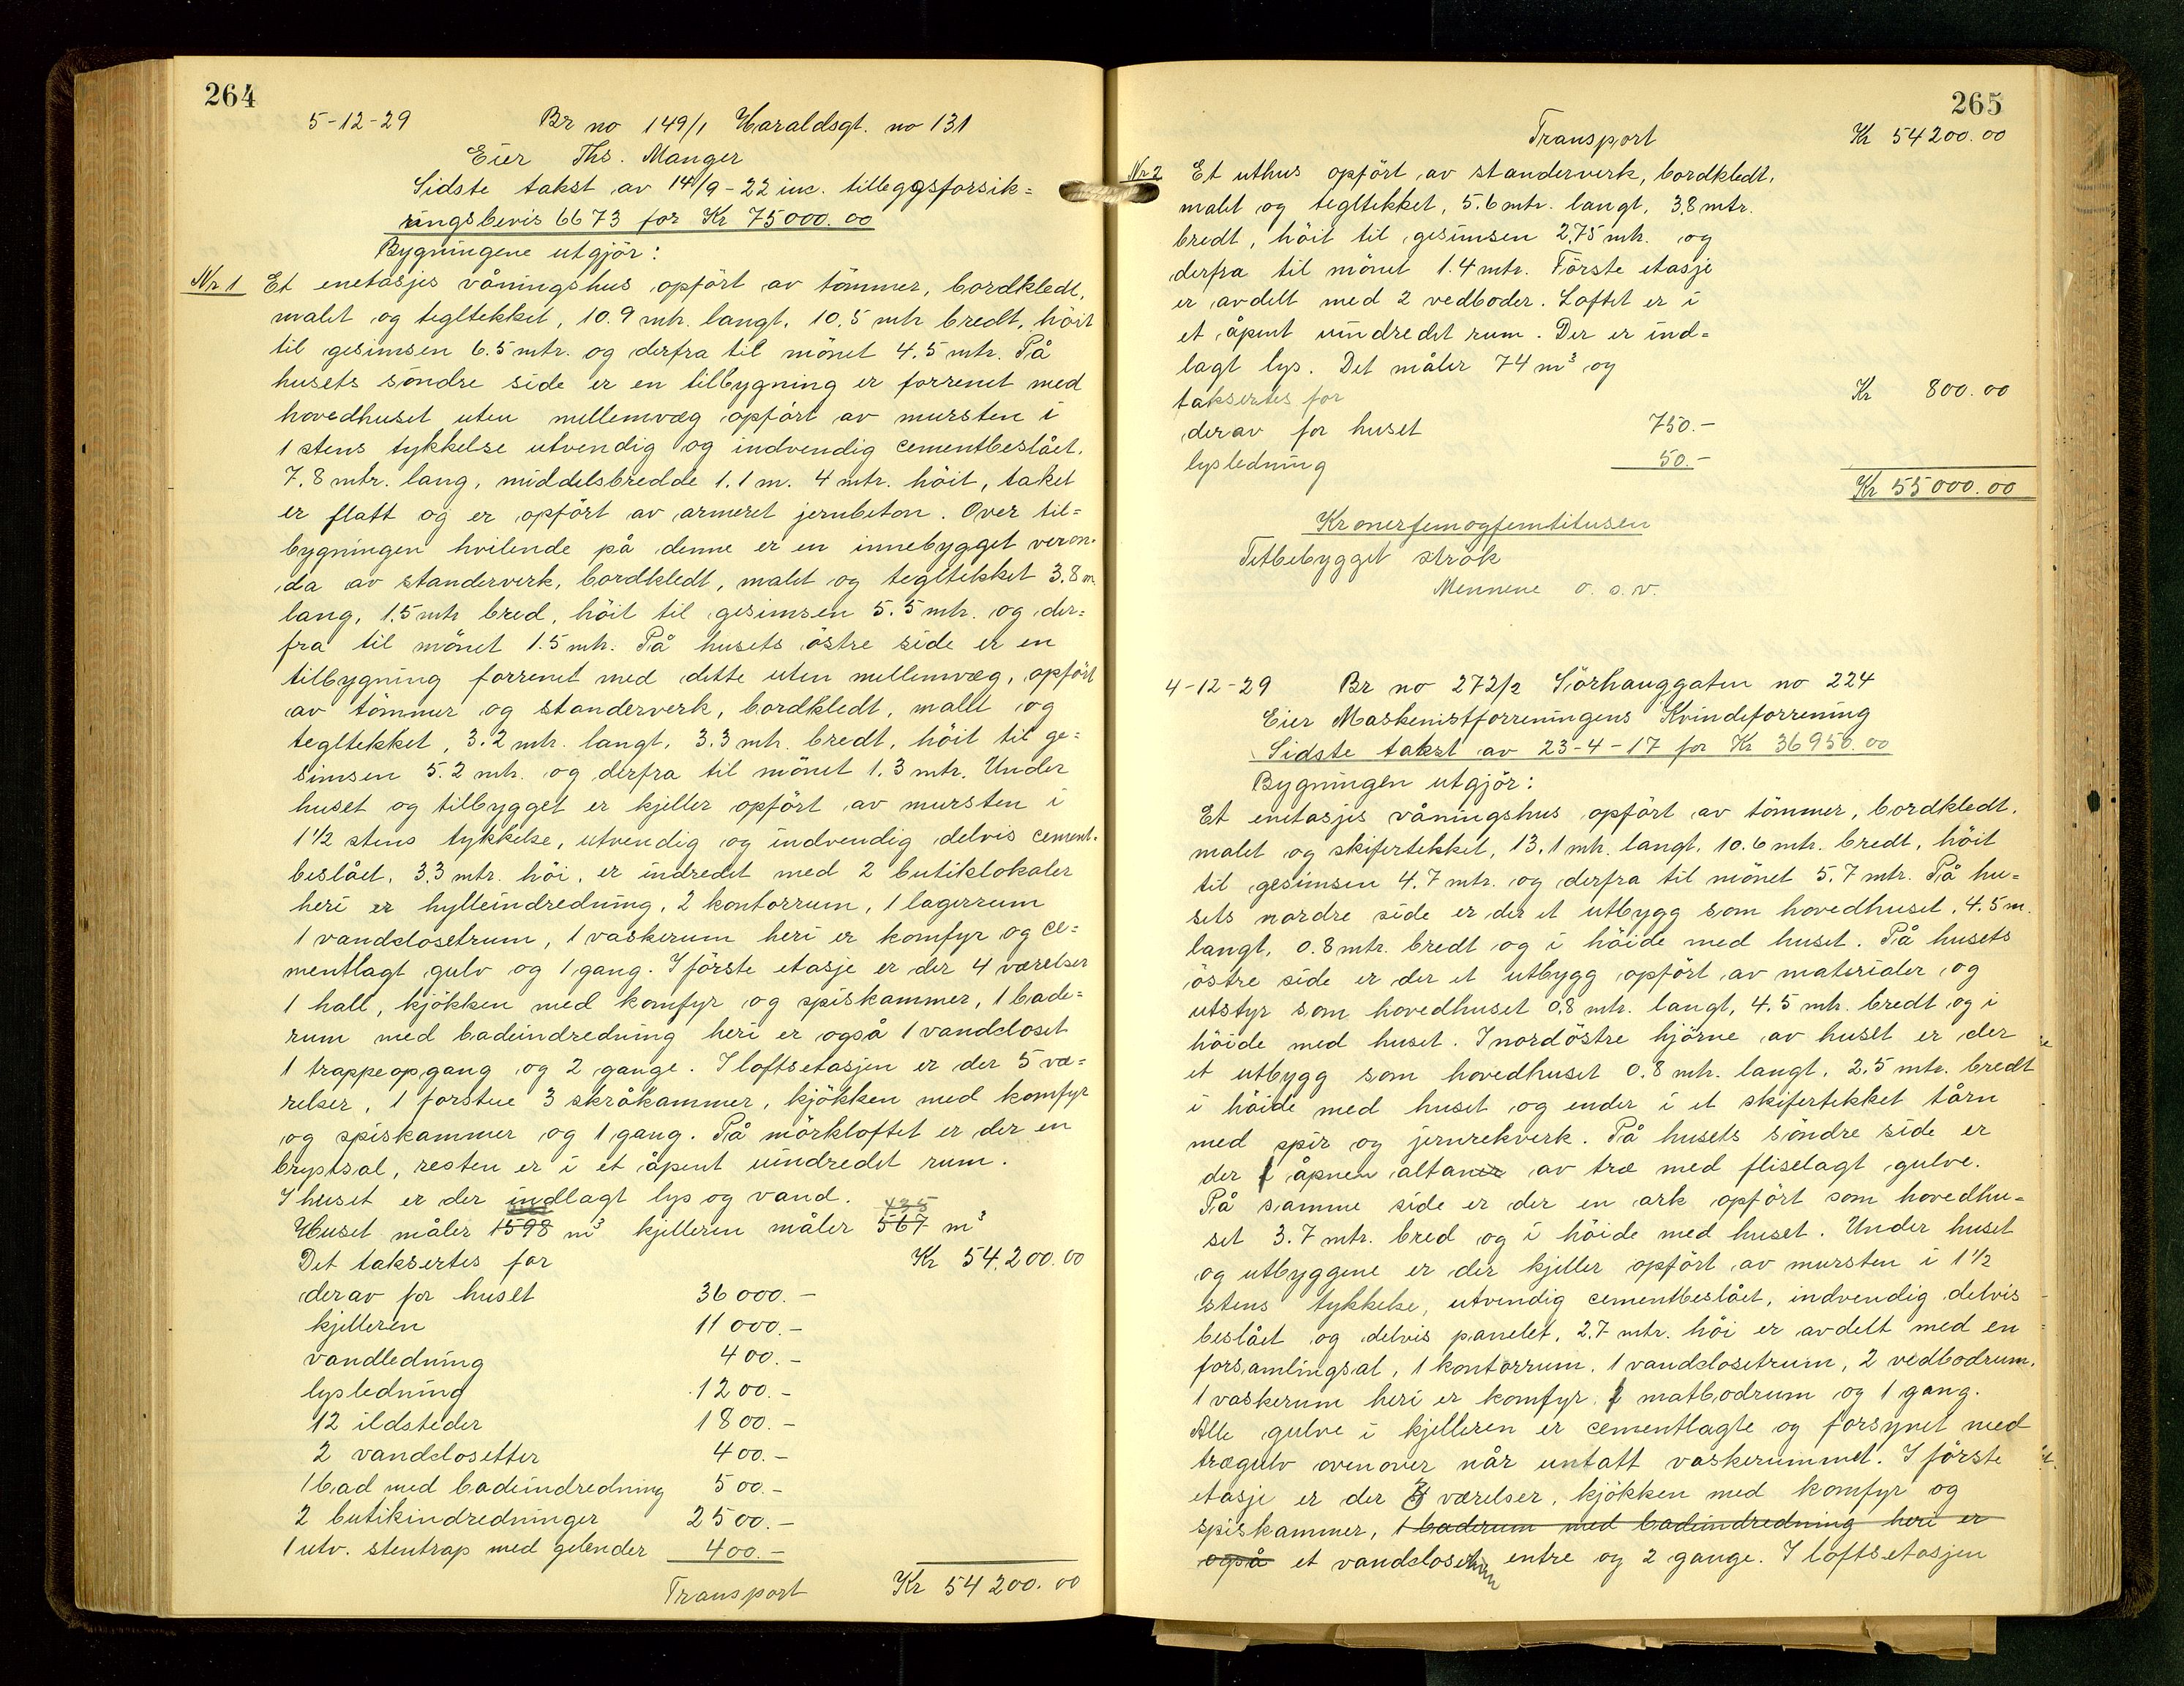 264
5-12-29 Br no 149/1 Haraldsgt. no 131
Eier Ths. Manger
Sidste takst av 14/9-22 inc. tilleggsforsik=
ringsbevis 6673 for Kr 75000.00
Bygningene utgjör:
Nr 1 Et enetasjes våningshus opfört av tömmer, bordkledt,
malet og tegltekket, 10.9 mtr. langt, 10.5 mtr bredt, höit
til gesimsen 6.5 mtr. og derfra til mönet 4.5 mtr. På
husets söndre side er en tilbygning er forrenet med
hovedhuset uten mellemvæg opfört av mursten i
1 stens tykkelse utvendig og indvendig cementbeslået.
7.8 mtr. lang, middelsbredde 1.1 m. 4 mtr. höit, taket
er flatt og er opfört av armeret jernbeton. Over til=
bygningen hvilende på denne er en innebygget veran-
da av standerverk, bordkledt, malet og tegltekket 3.8 m.
lang, 1.5 mtr bred, höit til gesimsen 5.5 mtr. og der=
fra til mönet 1.5 mtr. På husets östre side er en
tilbygning forrenet med dette uten mellemvæg, opfört
av tömmer og standerverk, bordkledt, malt og
tegltekket, 3.2 mtr. langt, 3.3 mtr. bredt, höit til ge=
simsen 5.2 mtr. og derfra til mönet 1.3 mtr. Under
huset og tilbygget er kjeller opfört av mursten i
1 1/2 stens tykkelse, utvendig og indvendig delvis cement-
beslået. 3.3 mtr. höi, er indredet med 2 butiklokaler
heri er hylleindredning, 2 kontorrum, 1 lagerrum
1 vandclosetrum, 1 vaskerum heri er komfyr og ce=
mentlagt gulv og 1 gang. I förste etasje er der 4 værelser
1 hall, kjökken med komfyr og spiskammer, 1 bade=
rum med badeindredning heri er også 1 vandcloset
1 trappeopgang og 2 gange. I loftsetasjen er der 5 væ=
relser, 1 forstue 3 skråkammer, kjökken med komfyr
og spiskammer og 1 gang. På mörkloftet er der en
brystsal, resten er i et åpent uindredet rum.
I huset er der indlagt lys og vand.
435
Huset måler 1598 m³ kjelleren måler 567 m³
Det taksertes for Kr 54.200.00
derav for huset 36000.-
kjelleren 11000.-
vandledning 400.-
lysledning 1200.-
12 ildsteder 1800.-
2 vandclosetter 400.-
1 bad med badeindredning 500.-
2 butikindredninger 2500.-
1 utv. stentrap med gelender 400.-
Transport Kr 54200.00
265
Transport Kr 54200.00
Nr 2 Et uthus opfört av standerverk, bordkledt,
malet og tegltekket, 5.6 mtr. langt, 3,8 mtr.
bredt, höit til gesimsen 2,75 mtr. og
derfra til mönet 1.4 mtr. Förste etasje
er avdelt med 2 vedboder. Loftet er i
et åpent uindredet rum. Der er ind=
lagt lys. Det måler 74 m³ og
taksertes for Kr 800.00
derav for huset 750.-
lysledning 50.-
Kr 55000.00
Kronerfemogfemtitusen
Tetbebygget strök
Mennene o.s.v.
4-12-29 Br no 272/2 Sörhauggaten no 224
Eier Maskenistforreningens Kvindeforrening
Sidste takst av 23-4-17 for Kr 36950.00
Bygningen utgjör:
Et enetasjes våningshus opfört av tömmer, bordkledt.
malet og skifertekket, 13.1 mtr. langt, 10.6 mtr. bredt, höit
til gesimsen 4.7 mtr. og derfra til mönet 5.7 mtr. På hu=
sets nordre side er der et utbygg som hovedhuset, 4.5 m.
langt, 0.8 mtr. bredt og i höide med huset. På husets
östre side er der et utbygg opfört av materialer og
utstyr som hovedhuset 0.8 mtr. langt, 4.5 mtr. bredt og i
höide med huset. I nordöstre hjörne av huset er der
et utbygg som hovedhuset 0.8 mtr. langt, 2.5 mtr. bredt
i höide med huset og ender i et skifertekket tårn
med spir og jernrekverk. På husets söndre side er
der 1 åpnen altaner av træ med fliselagt gulve.
På samme side er der en ark opfört som hovedhu=
set 3.7 mtr. bred og i höide med huset. Under huset
og utbyggene er der kjeller opfört av mursten i 1 1/2
stens tykkelse, utvendig cementbeslået, indvendig delvis
beslået og delvis panelet, 2.7 mtr. höi er avdelt med en
forsamlingsal, 1 kontorrum, 1 vandclosetrum, 2 vedbodrum.
1 vaskerum heri er komfyr matbodrum og 1 gang.
Alle gulve i kjelleren er cementlagte og forsynet med
trægulv ovenover når untatt vaskerummet. I förste
etasje er der 3 værelser, kjökken med komfyr og
spiskammer, 1 baderum med badeindredning heri er
også et vandclosetrum entre og 2 gange. I loftsetasjen